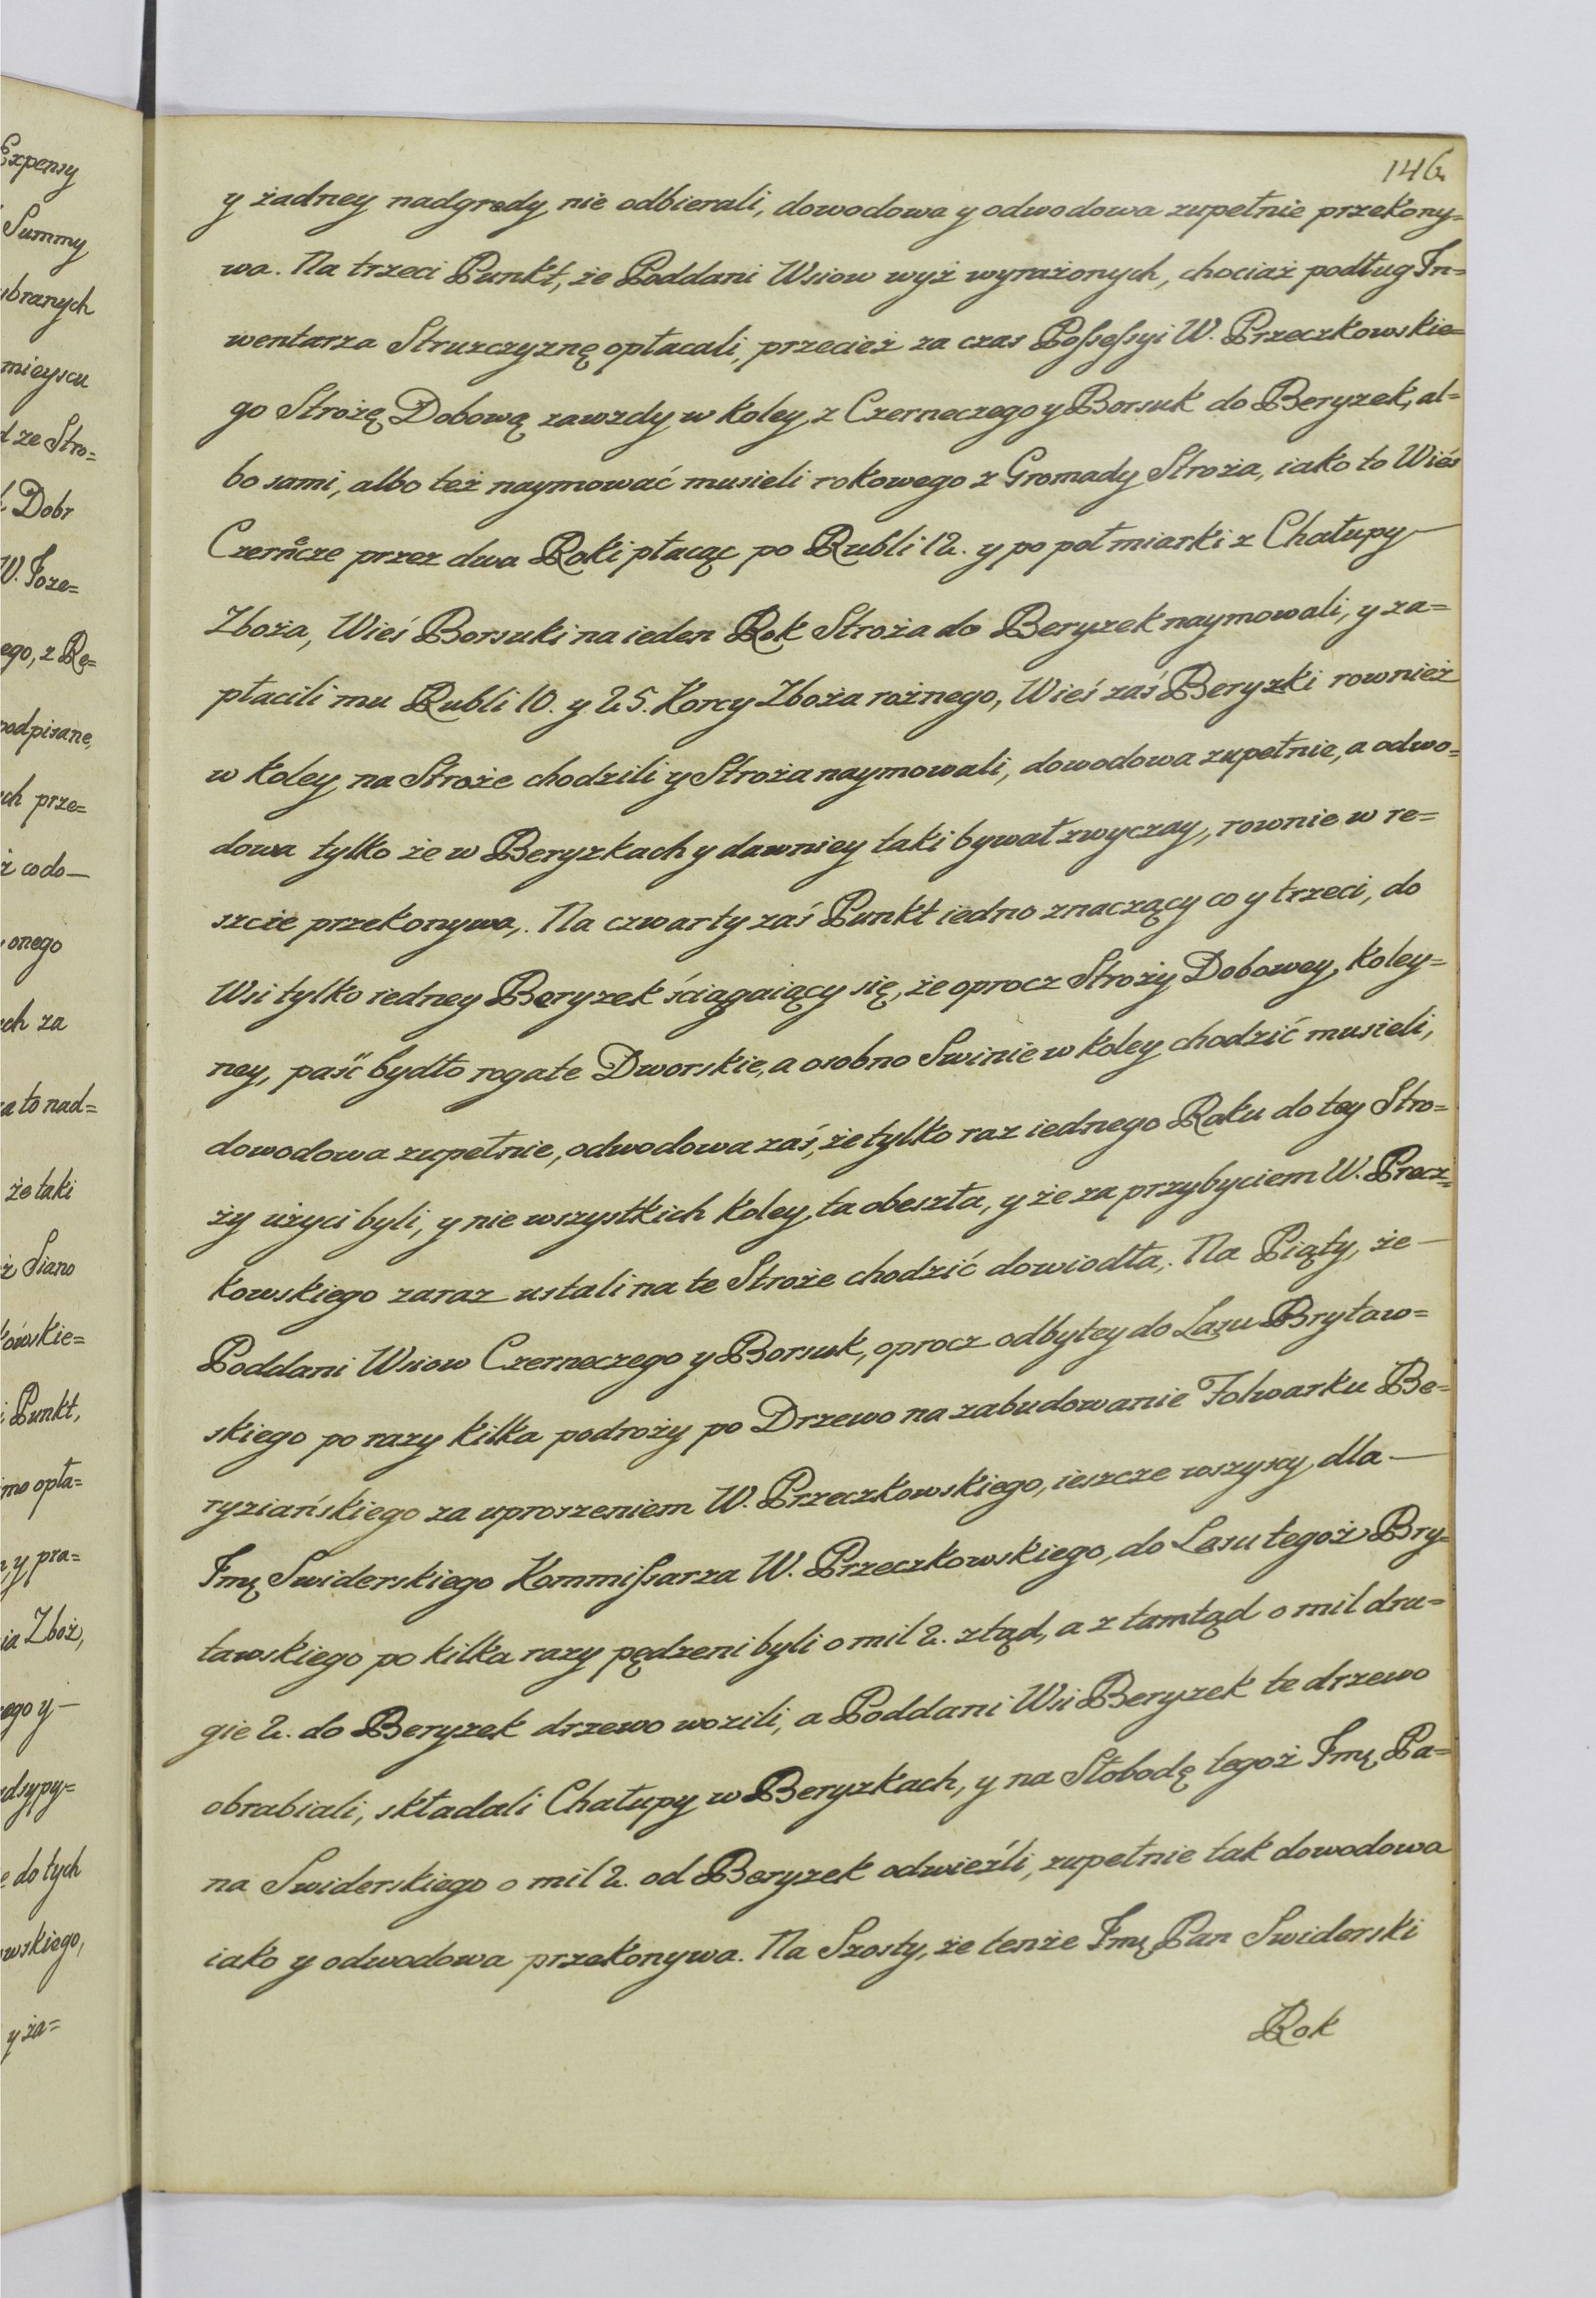 Expensy
Summy
ubranych
mieyscu
d ze Stro=
Dobr
W. Joze=
ego, z Rę=
podpisane,
ch prze=
ż codo—
onego
ech za
a to nad=
że taki
ż Siano
kówskie=
i Punkt,
mo opła=
y pra=
ia Zboż,
ego y—
dsypy=
e do tych
owskiego,
y ża=
146.
y żadney nadgrody nie odbierali, dowodowa y odwodowa zupełnie przekony=
wa. Na trzeci Punkt, że Poddani Wsiow wyż wyrażonych, chociaż podług In=
wentarza Struzczyznę opłacali, przecież za czas Poſseſsyi W. Przeczkowskie=
go Strożę Dobową zawzdy w koley z Czerneczego y Borsuk do Beryzek, al=
bo sami, albo też naymować musieli rokowego z Gromady Stroża, iako to Wieś
Czerncze przez dwa Roki płacąc po Rubli 12. y po poł miarki z Chałupy—
Zboża, Wieś Borsuki na ieden Rok Stroża do Beryzek naymowali, y za=
płacili mu Rubli 10. y 25. Korcy Zboża rożnego, Wieś zaś Beryzki rownież
w koley na Stroże chodzili y Stroża naymowali, dowodowa zupełnie, a odwo=
dowa tylko że w Beryzkach y dawniey taki bywał zwyczay, rownie w re=
szcie przekonywa,. Na czwarty zaś Punkt iedno znaczący co y trzeci, do
Wsi tylko iedney Beryzek ściągaiący się, że oprocz Stroży Dobowey, koley=
ney, paść bydło rogate Dworskie, a osobno Swinie w koley chodzić musieli,
dowodowa zupełnie, odwodowa zaś, że tylko raz iednego Roku do tey Stro=
ży użyci byli, y nie wszystkich koley ta obeszła, y że za przybyciem W. Precz=
kowskiego zaraz ustali na te Stroże chodzić dowiodła,. Na Piąty, że—
Poddani Wsiow Czerneczego y Borsuk, oprocz odbytey do Lasu Bryław=
skiego po razy kilka podroży po Drzewo na zabudowanie Folwarku Be=
ryziańskiego za uproszeniem W. Przeczkowskiego, ieszcze wszyscy dla—
Jmę Swiderskiego Kommiſsarza W. Przeczkowskiego, do Lasu tegoż Bry=
ławskiego po kilka razy pędzeni byli o mil 2. ztąd, a z tamtąd o mil dru=
gie 2. do Beryzek drzewo wozili, a Poddani Wsi Beryzek te drzewo
obrabiali, składali Chałupy w Beryzkach, y na Słobodę tegoż Jmę Pa=
na Swiderskiego o mil 2. od Beryzek odwieźli, zupełnie tak dowodowa
iako y odwodowa przekonywa. Na Szosty, że tenże Jmę Pan Swiderski
Rok